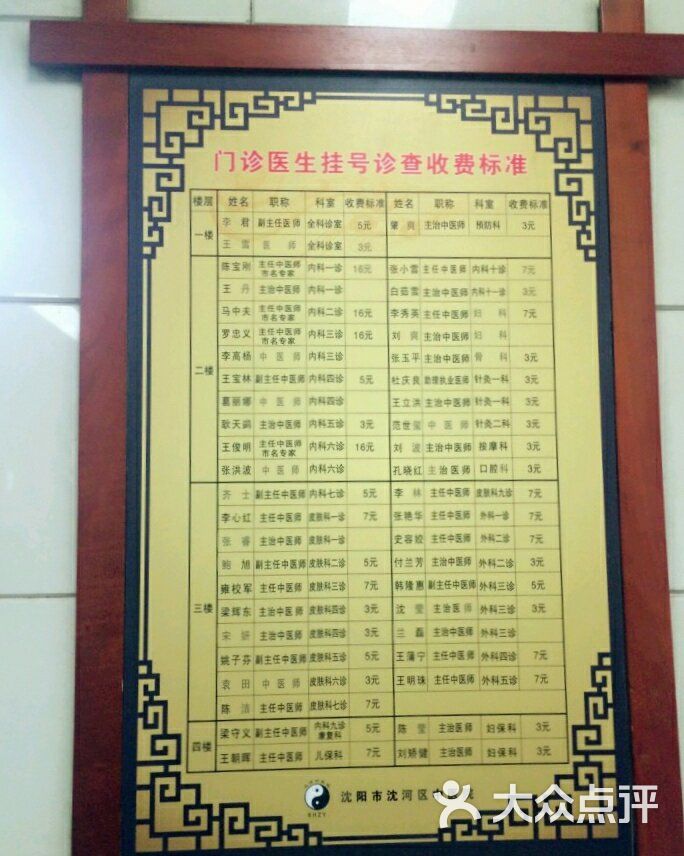 门诊医生挂号诊查收费标准
楼层 姓名 职称 科室 收费标准 姓名 职称 科室 收费标准
一楼 李君 副主任医师 全科诊室 5元 肇爽 主治中医师 预防科 3元
王雪 医师 全科诊室 3元
二楼 陈宝刚 主任中医师 市名专家 内科一诊 16元 张小雪 主任中医师 内科十诊 7元
王丹 主治中医师 内科一诊 白茹雪 主治中医师 内科十一诊 3元
马中夫 主任中医师 市名专家 内科二诊 16元 李秀英 主任中医师 妇科 7元
罗忠义 主任中医师 市名专家 内科三诊 16元 刘爽 主治中医师 妇科
李高杨 中医师 内科三诊 张玉平 主治中医师 骨科 3元
王宝林 副主任中医师 内科四诊 5元 杜庆良 助理执业医师 针灸一科 3元
葛丽娜 中医师 内科四诊 王立洪 主治中医师 针灸一科 3元
耿天鹏 主治中医师 内科五诊 3元 范世玺 中医师 针灸二科 3元
王俊明 主任中医师 市名专家 内科六诊 16元 刘波 主治中医师 按摩科 3元
张洪波 中医师 内科六诊 孔晓红 主治医师 口腔科 3元
三楼 齐士 副主任中医师 内科七诊 5元 李林 主任中医师 皮肤科九诊 7元
李心红 主任中医师 皮肤科一诊 7元 张艳华 主任中医师 外科一诊 7元
张睿 主治中医师 皮肤科一诊 史容姣 主任中医师 外科二诊 7元
鲍旭 副主任中医师 皮肤科二诊 5元 付兰芳 主治中医师 外科二诊 3元
雍校军 主任中医师 皮肤科三诊 7元 韩隆惠 副主任中医师 外科三诊 5元
梁辉东 主治中医师 皮肤科四诊 3元 沈莹 主治医师 外科三诊 3元
宋妍 主治中医师 皮肤科四诊 3元 兰磊 主治中医师 外科三诊
姚子芬 副主任中医师 皮肤科五诊 5元 王蒲宁 主任中医师 外科四诊 7元
袁田 中医师 皮肤科六诊 3元 王明珠 主任中医师 外科五诊 7元
陈洁 主任中医师 皮肤科七诊 7元
四楼 梁守义 副主任中医师 内科九诊 康复科 5元 陈莹 主治医师 妇保科 3元
王朝晖 主任中医师 儿保科 7元 刘娇健 主治医师 妇保科 3元
SHZY 沈阳市沈河区中
大众点评